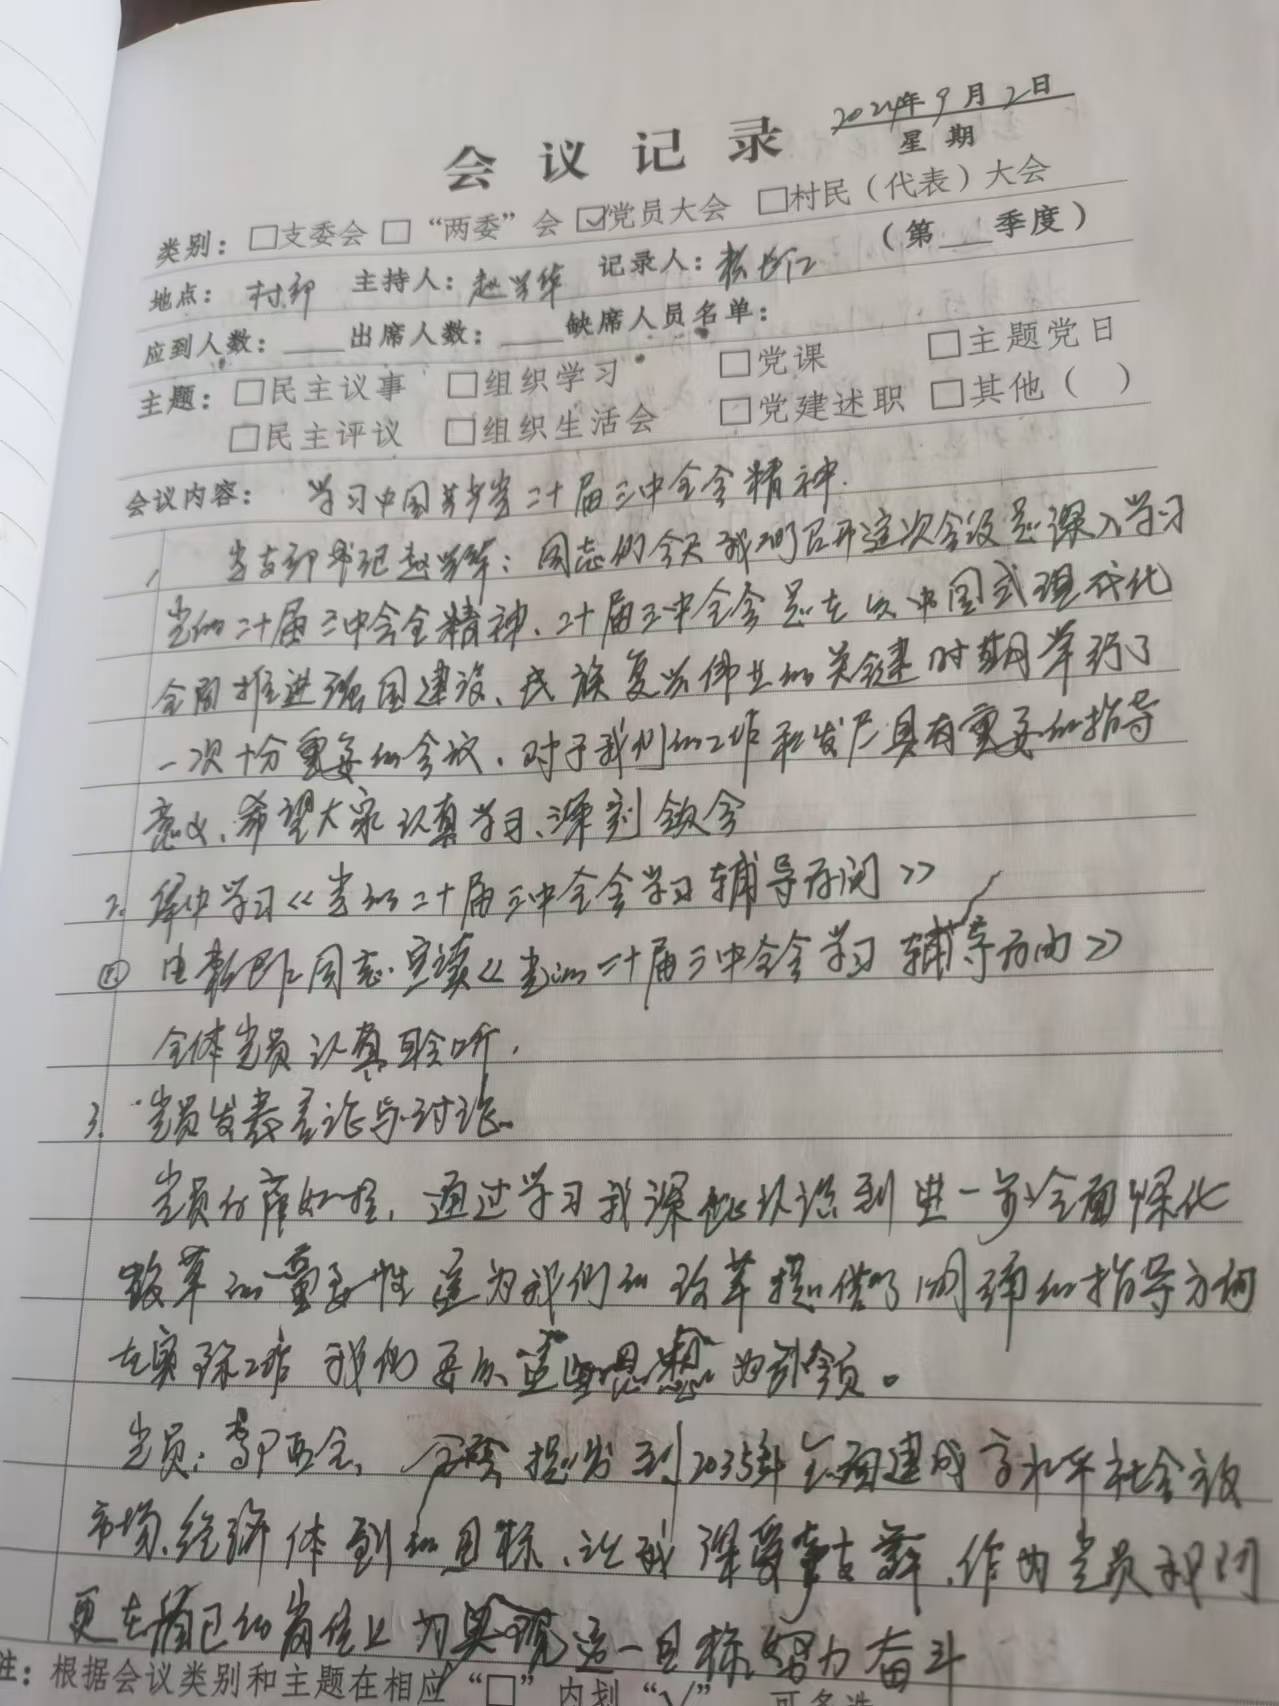 2024年9月2日
会议记录 星期
类别：□支委会 □“两委”会 ☑党员大会 □村民（代表）大会
（第___季度）
地点：村部 主持人：赵兴华 记录人：
应到人数：____ 出席人数：____ 缺席人员名单：
主题：□民主议事 □组织学习 □党课 □主题党日
□民主评议 □组织生活会 □党建述职 □其他（ ）
会议内容：学习中国共产党二十届三中全会精神.
1、党支部书记赵兴华：同志们今天我们召开这次会议是深入学习
党的二十届三中会全精神、二十届三中全会是在以中国式现代化
全面推进强国建设、民族复兴伟业的关键时期举行了
一次十分重要的会议，对于我们的工作和发展具有重要的指导
意义、希望大家认真学习、深刻领会
2. 集中学习《党的二十届三中全会学习辅导百问》
由 同志宣读《党的二十届三中全会学习辅导百问》
全体党员认真聆听，
3. 党员发表言论与讨论。
党员 ，通过学习我深 认识到进一步全面深化
改革的重要性 这为我们的改革提供了明确的指导方向
在实际工作 我们要以 思想为引领。
党员： 全会提出到2035年全面建成高水平社会议
市场、经济体制的目标、让我深受鼓舞，作为党员我们
更在自己的岗位上为实现这一目标努力奋斗
注：根据会议类别和主题在相应“□”内划“√”